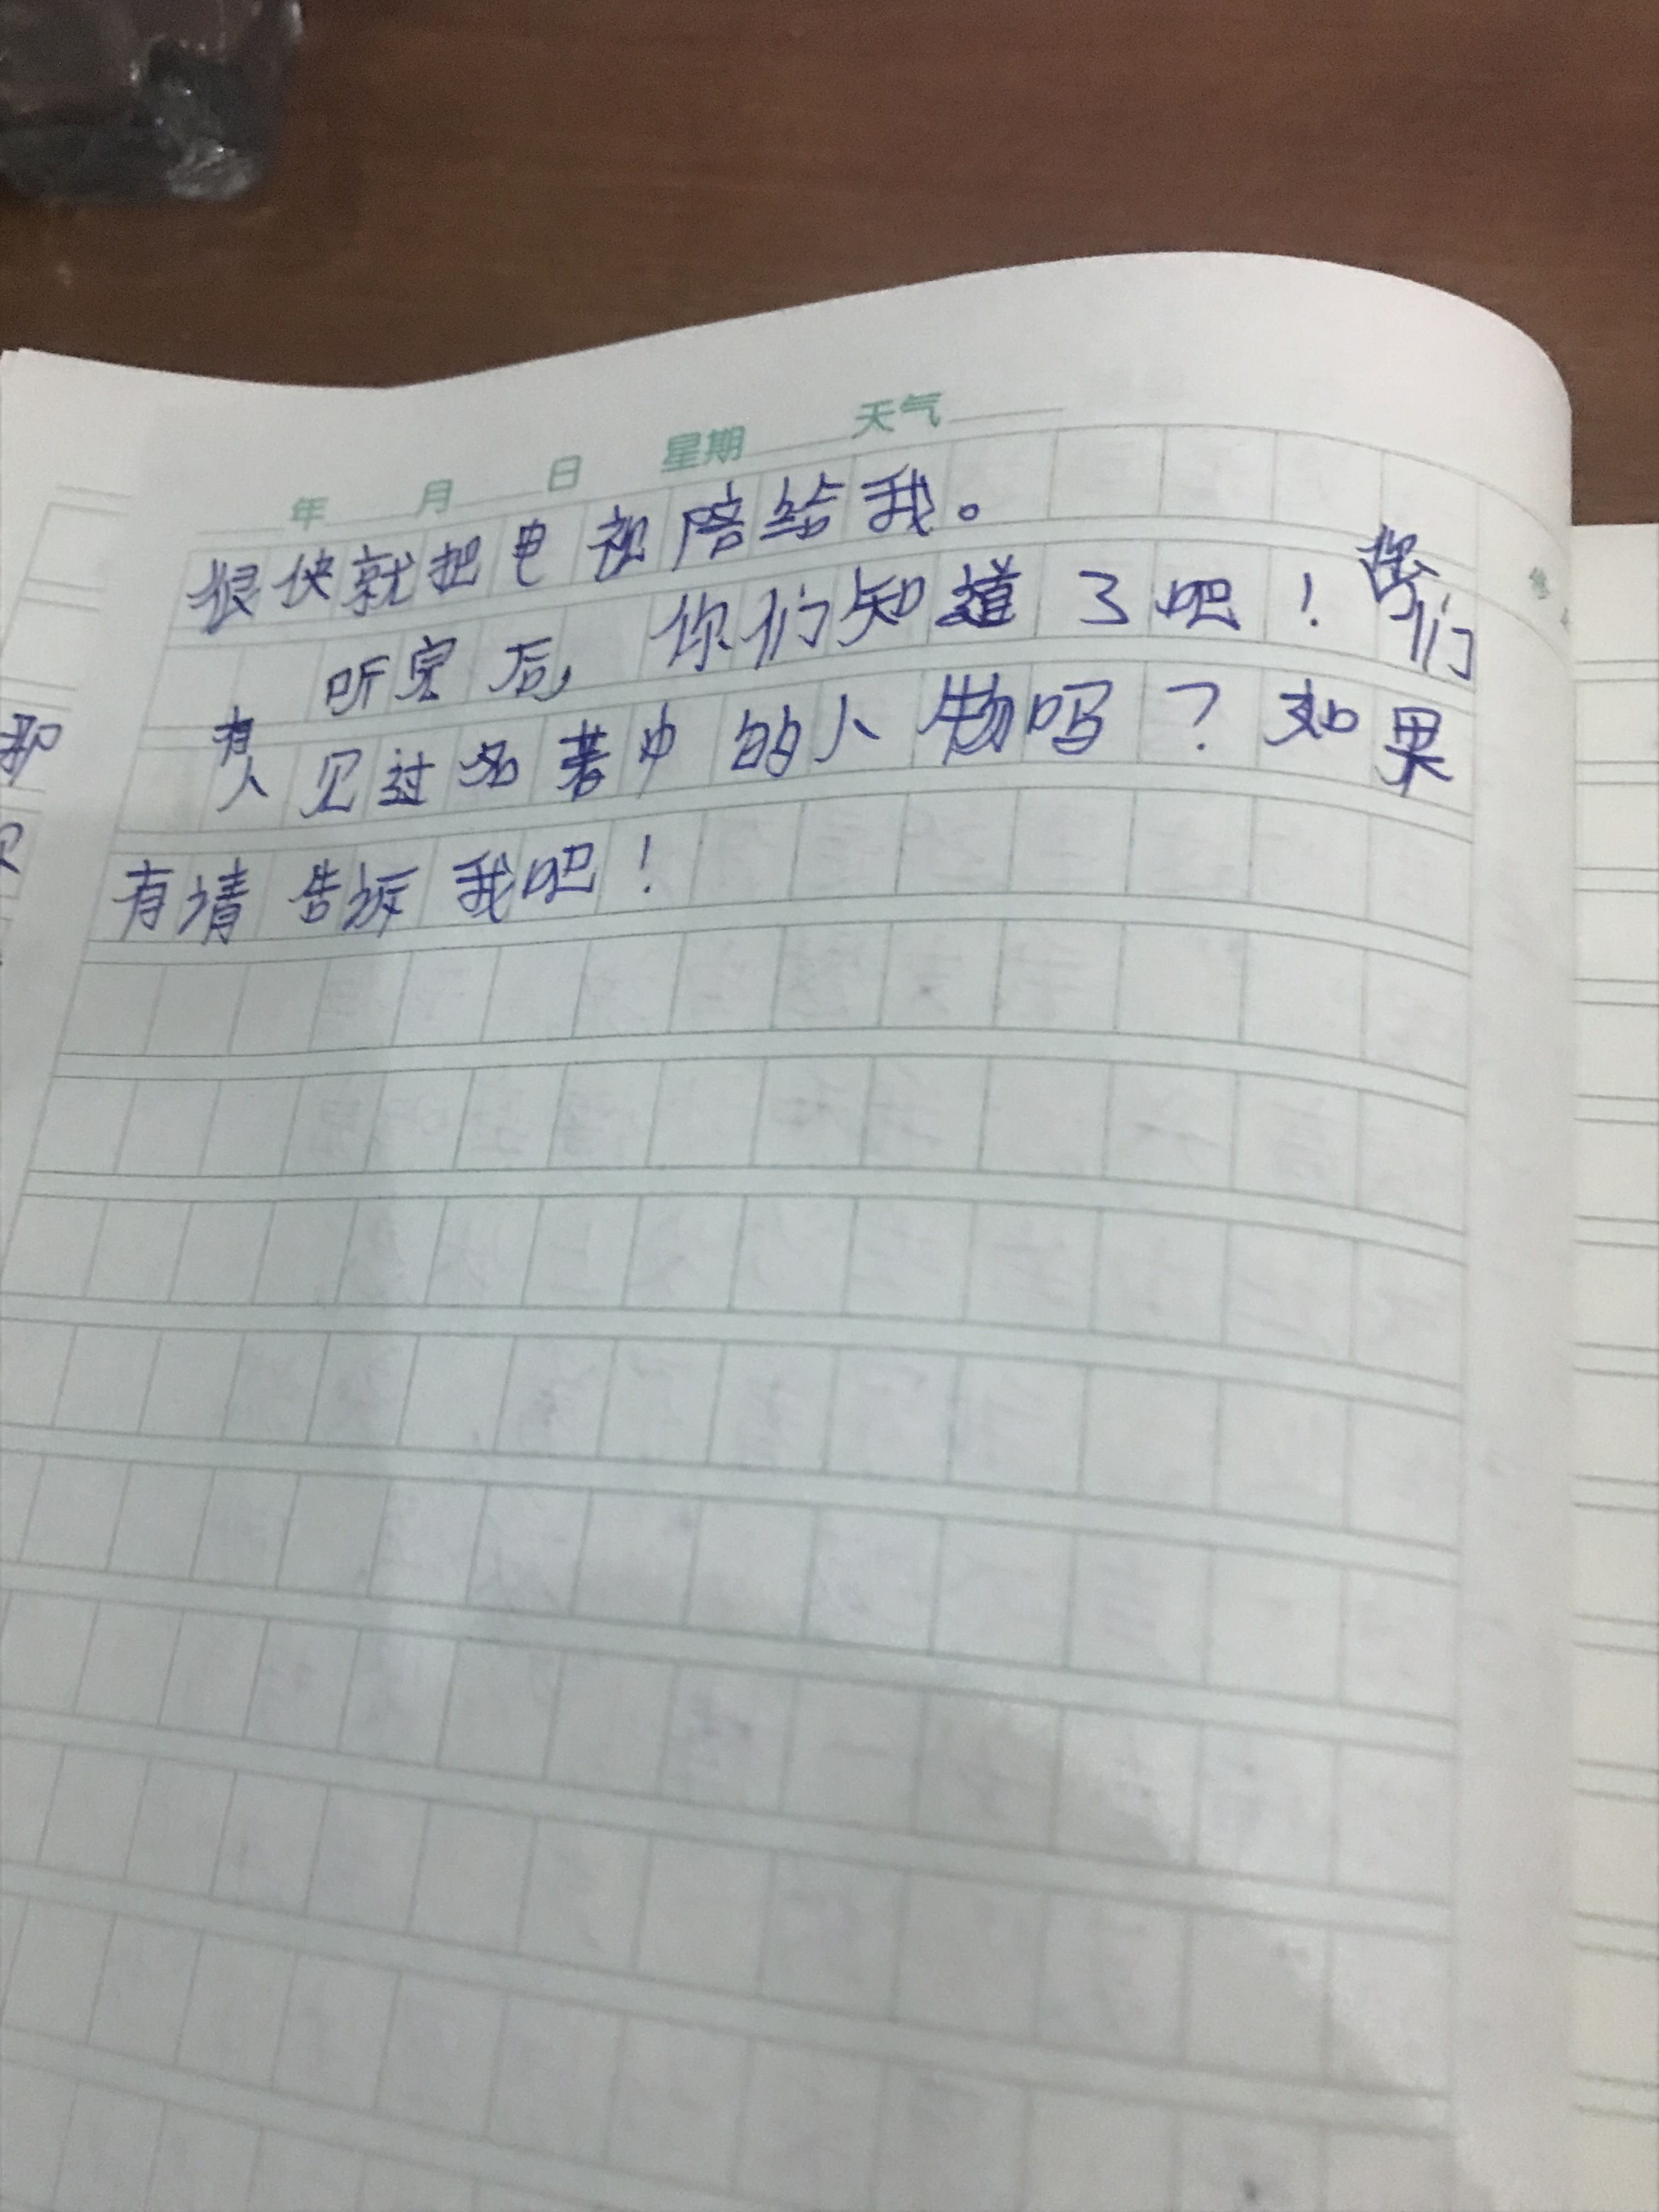 年 月 日 星期 天气
很快就把电视陪给我。
听完后，你们知道了吧！你们
有人见过名著中的人物吗？如果
有请告诉我吧！